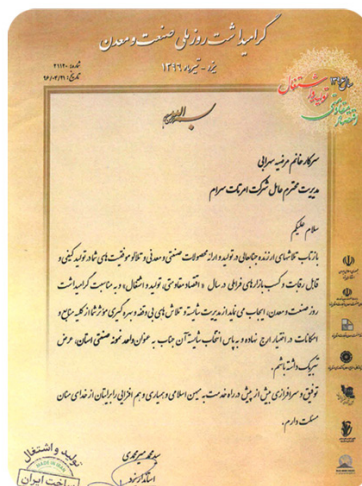 گرامیداشت روز ملی صنعت و معدن
یزد - تیرماه ۱۳۹۶
شماره: ۲۱۱۲۰
تاریخ: ۹۶/۰۳/۳۱
بسم الله
سرکار خانم مرضیه سهرابی
مدیریت محترم عامل شرکت امرتات سرام
سلام علیکم
بازتاب تلاشهای ارزنده جنابعالی در تولید و ارائه محصولات صنعتی و معدنی و تلالؤ موفقیت های شما در تولید کیفی و
قابل رقابت و کسب بازارهای فراملی در سال « اقتصاد مقاومتی، تولید و اشتغال» و به مناسبت گرامیداشت
روز صنعت و معدن، ایجاب می نماید از مدیریت شایسته و تلاش های بی وقفه و بهره گیری موثر شما از کلیه منابع و
امکانات در اختیار ارج نهاده و به پاس انتخاب شایسته آن جناب به عنوان واحد نمونه صنعتی استان، عرض
تبریک داشته باشم.
توفیق و سرافرازی بیش از پیش در راه خدمت به میهن اسلامی و همیاری و هم افزایی را برایتان از خدای منان
مسئلت دارم.
سید محمد میرمحمدی
استاندار یزد
تولید و اشتغال
MADE IN IRAN
ساخت ایران